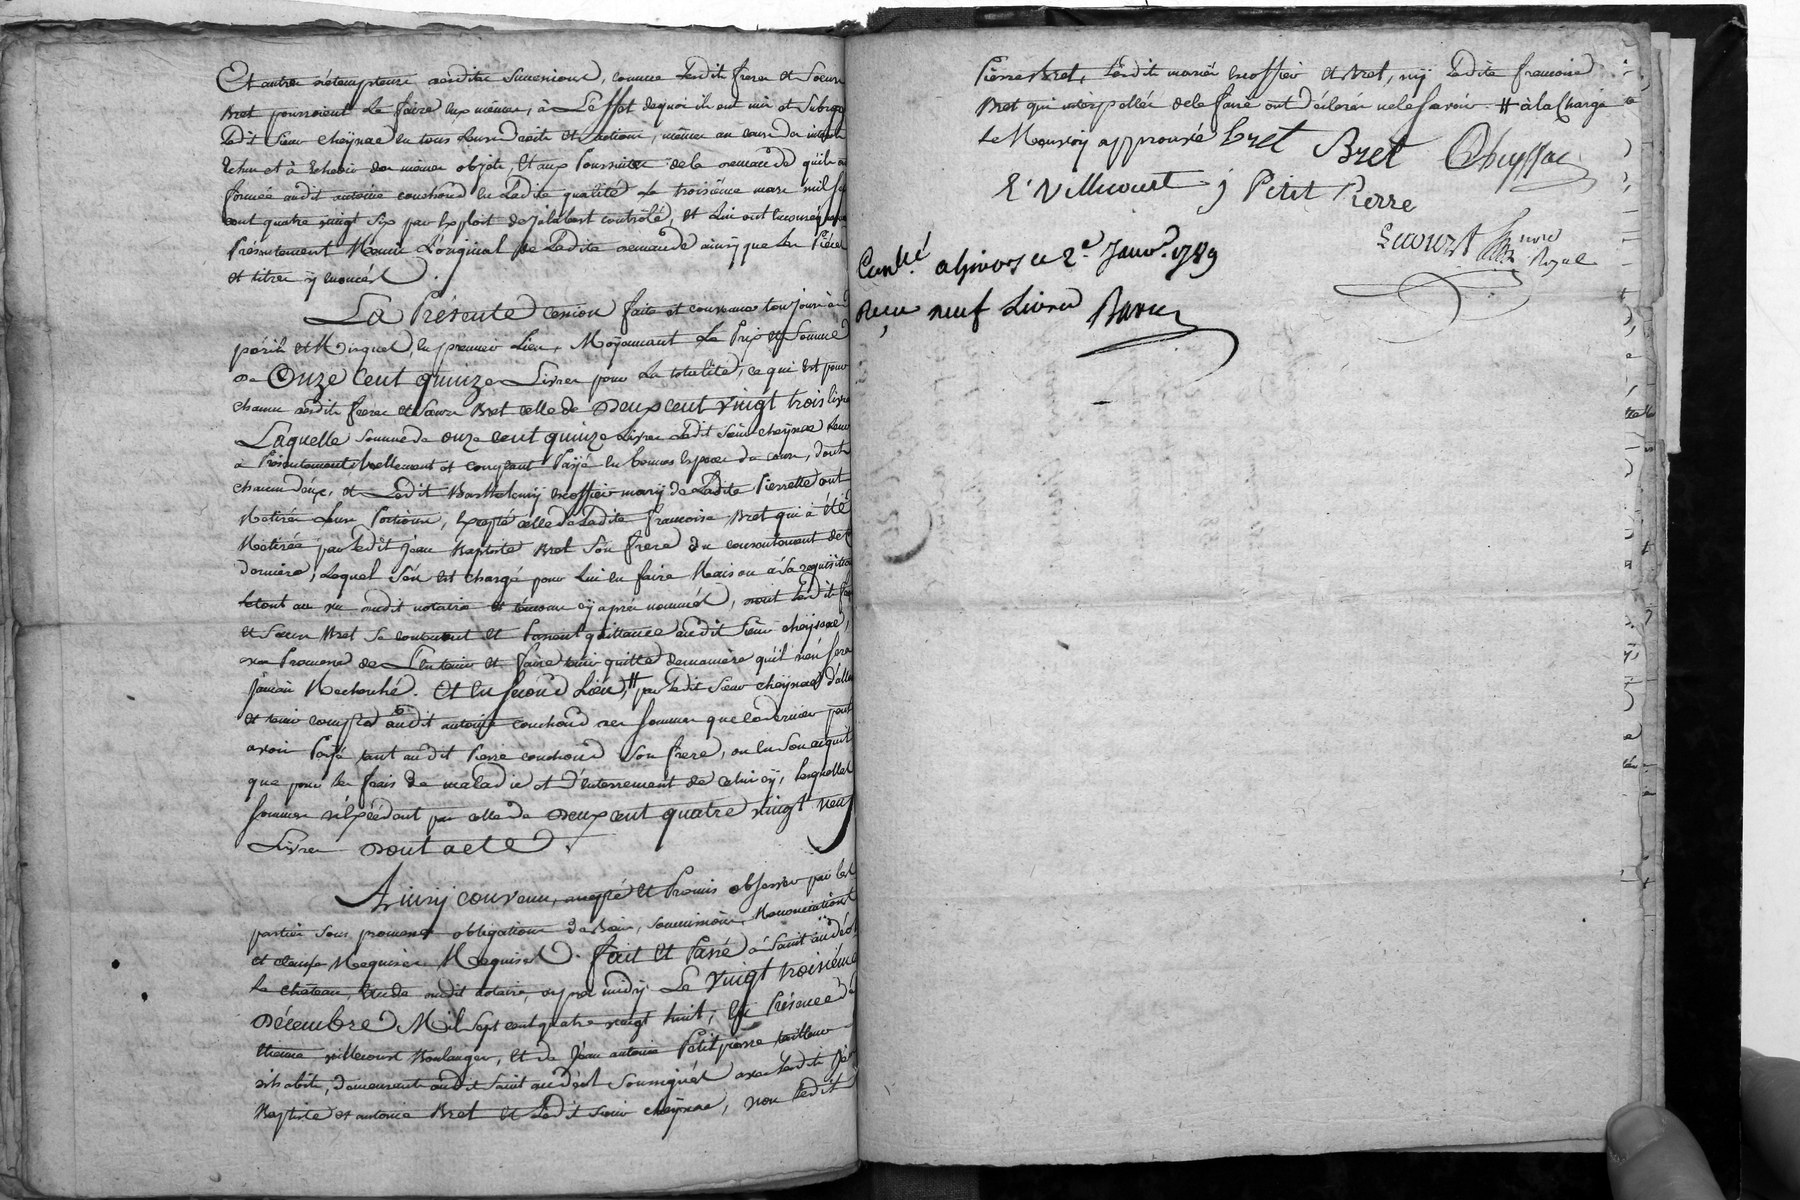 Et autres détempteurs desdites successions, comme lesdits freres et soeurs
Bret pourroient le faire eux mêmes, à l'effet de quoi ils ont mis et subrogé
ledit sieur cheyssac en tous leurs droits et actions, même au cours des intérets
échus et à échoir des mêmes objets, et aux poursuites de la demande qu'ils ont
formée audit antoine couchoud en ladite qualité le troisième mars mil sept
cent quatre vingt six par exploit de jalabert contrôlé, et lui ont encore
Présentement Remis l'original de ladite demande ainsy que les Pièces
et titres y énoncés.
La Présente cession faite et convenue toujours aux
périls et Risques, en premier lieu, Moyennant le Prix et somme
de Onze Cent quinze Livres pour la totalité, ce qui est pour
chacun desdits freres et soeurs Bret celle de Deux cent vingt trois livres
Laquelle somme de onze cent quinze livres ledit sieur cheyssac leur
a Présentement réellement et comptant Payé en bonnes espèces de cours, dont
chacun d'eux, et ledit Barthelemy escoffier mary de ladite Pierrette ont
Retirés leurs Portions, excepté celle de ladite francoise Bret qui à été
Retirée par ledit jean Baptiste Bret son frere du consentement de cette
derniere, lequel s'en est chargé pour lui en faire Raison à sa requisition
letout au vu dudit notaire et témoins cy après nommés, dont lesdits freres
et soeurs Bret se contentent et Passent quittance audit sieur cheyssac,
avec Promesse de l'en tenir et faire tenir quitte de manière qu'il n'en sera
jamais Recherché. Et en second Lieu, # par ledit sieur cheyssac d'allouer
et tenir compte audit antoine couchoud des sommes que ce dernier peut
avoir Payé tant audit Pierre couchoud son frere, ou en son acquit
que pour les frais de maladie et d'enterrement de celui cy, lesquelles
sommes n'éxcédent pas celle de Deux cent quatre vingt neuf
Livres Dont acte.
Ainsy convenu, accepté et Promis observer par les
parties sous promesses obligations de Biens, soumissions, Renonciations
et clauses Requises Requises. fait et Passé à saint
Le château, étude dudit notaire, après midy Le Vingt troisième
Décembre Mil sept cent quatre vingt huit, En Présence d'
Etienne villecourt Boulanger, et de Jean antoine Petitpierre tailleur
d'habits, demeurants audit saint soussignés avec lesdits jean
Baptiste et antoine Bret et ledit sieur cheyssac, non ledit
Pierre Bret, lesdits mariés escoffier et Bret, ny ladite francoise
Bret qui interpellés de le faire ont déclarés ne le savoir. # à la Charge
Le Renvoy approuvé bret Bret Cheyssac
E. Villecourt j Petit Pierre
Lecourt Nore Royal
Conlé. ce 2e. Janvr. 1789
Reçu neuf Livres